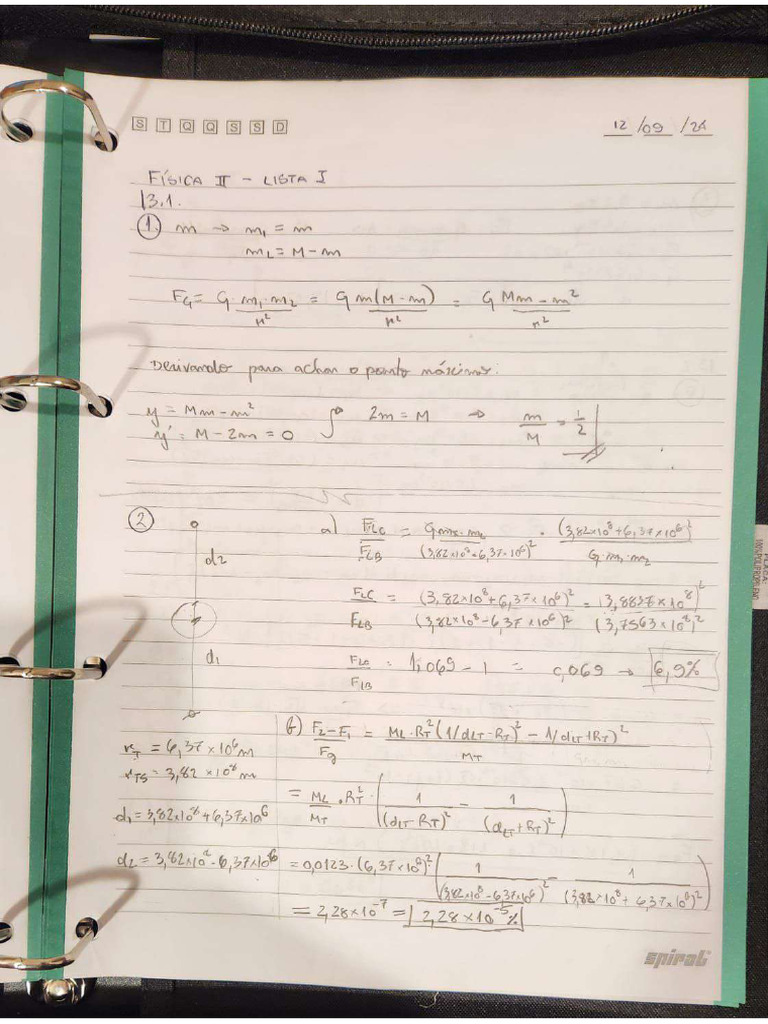 S T Q Q S S D
12 / 09 / 24
FÍSICA II - LISTA I
13.1.
1. m → m₁ = m
m₂ = M - m
F_G = G · m₁ · m₂ / r² = G m(M - m) / r² = G Mm - m² / r²
Derivando para achar o ponto máximo:
y = Mm - m²
y' = M - 2m = 0
2m = M ⇒ m/M = 1/2
2
d2
d1
a) F_LC / F_LB = G m₁ · m₂ / (3,82×10⁸ - 6,37×10⁶)² · (3,82×10⁸ + 6,37×10⁶)² / G · m₁ · m₂
F_LC / F_LB = (3,82×10⁸ + 6,37×10⁶)² / (3,82×10⁸ - 6,37×10⁶)² = (3,8837×10⁸)² / (3,7563×10⁸)²
F_LC / F_LB = 1,069 - 1 = 0,069 → 6,9%
r_T = 6,37×10⁶ m
r_TS = 3,82×10⁸ m
d₁ = 3,82×10⁸ + 6,37×10⁶
d₂ = 3,82×10⁸ - 6,37×10⁶
b) F₂ - F₁ / F_g = M_L · R_T² (1/d_LT - R_T)² - 1/d_LT + R_T)² / M_T
= M_L / M_T · R_T² · (1 / (d_LT - R_T)² - 1 / (d_LT + R_T)²)
= 0,0123 · (6,37×10⁶)² (1 / (3,82×10⁸ - 6,37×10⁶)² - 1 / (3,82×10⁸ + 6,37×10⁶)²)
= 2,28×10⁻⁷ = 2,28×10⁻⁵ %
spiral